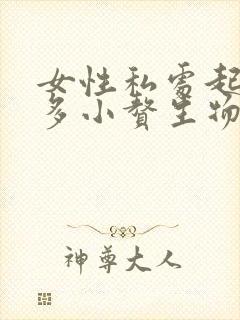 女性私处起
多小赘生物
神尊大人